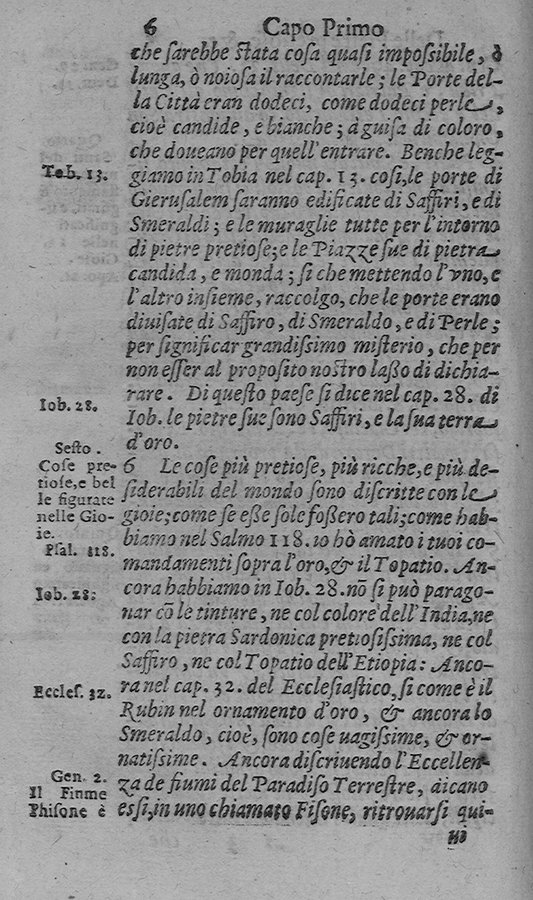 6 Capo Primo
che ſarebbe ſtata coſa quaſi impoſsibile, ò
lunga, ò noioſa il raccontarle; le Porte del-
la Città eran dodeci, come dodeci perle,
cioè candide, e bianche; à guiſa di coloro,
che doueano per quell'entrare. Benche leg-
Tob. 13.
giamo in Tobia nel cap. 13. coſi, le porte di
Gieruſalem ſaranno edificate di Saffiri, e di
Smeraldi; e le muraglie tutte per l'intorno
di pietre pretioſe; e le Piazze ſue di pietra
candida, e monda; ſi che mettendo l'vno, e
l'altro inſieme, raccolgo, che le porte erano
diuiſate di Saffiro, di Smeraldo, e di Perle;
per ſignificar grandiſsimo miſterio, che per
non eſſer al propoſito noſtro laſſo di dichia-
rare. Di queſto paeſe ſi dice nel cap. 28. di
Iob. 28.
Iob. le pietre ſue ſono Saffiri, e la ſua terra
d'oro.
Seſto.
Coſe pre-
tioſe, e bel
le figurate
nelle Gio-
ie.
Pſal. 118.
6 Le coſe più pretioſe, più ricche, e più de-
ſiderabili del mondo ſono diſcritte con le
gioie; come ſe eſſe ſole foſſero tali; come hab-
biamo nel Salmo 118. io hò amato i tuoi co-
mandamenti ſopra l'oro, & il Topatio. An-
Iob. 28.
cora habbiamo in Iob. 28. nō ſi può parago-
nar cō le tinture, ne col colore dell'India, ne
con la pietra Sardonica pretioſiſsima, ne col
Saffiro, ne col Topatio dell'Etiopia: Anco-
Eccleſ. 32.
ra nel cap. 32. del Eccleſiaſtico, ſi come è il
Rubin nel ornamento d'oro, & ancora lo
Smeraldo, cioè, ſono coſe uagiſsime, & or-
natiſsime. Ancora diſcriuendo l'Eccellen-
Gen. 2.
Il Fiume
Phiſone è
za de fiumi del Paradiſo Terreſtre, dicano
eſsi, in uno chiamato Fiſone, ritrouarſi qui-
ui